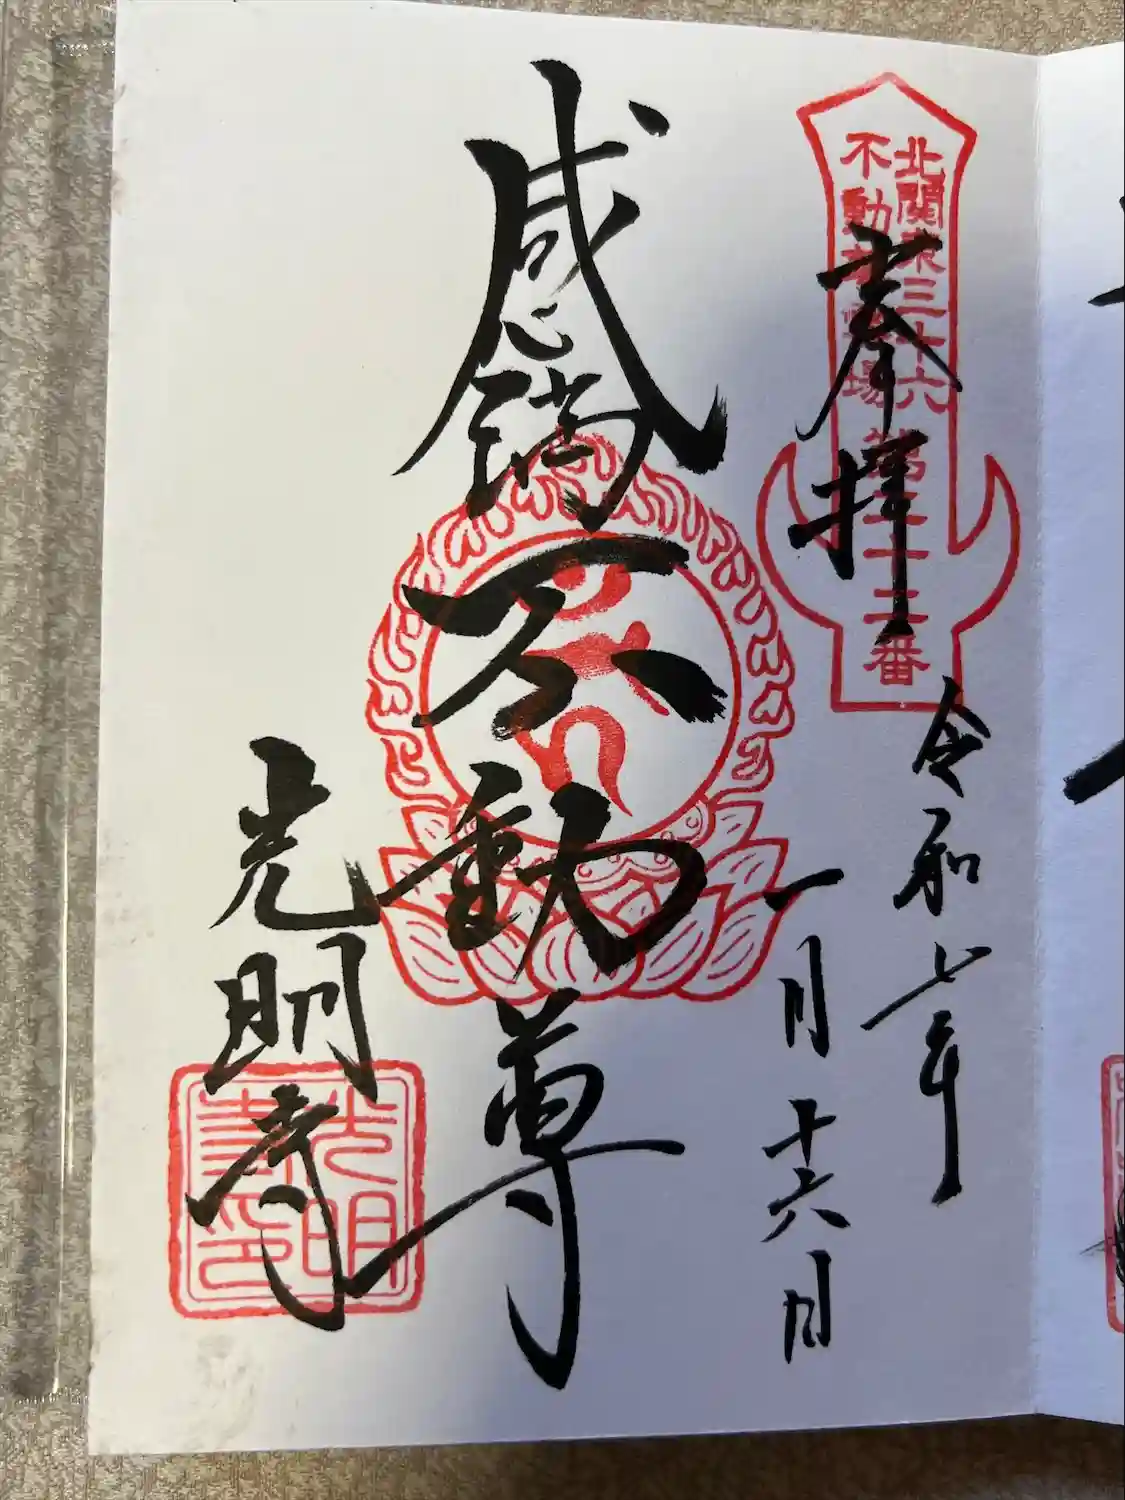 北關東三十六
不動尊霊場
第二十三番
奉拝
令和七年
一月十六日
感 不動尊
光明寺
光明
寺印